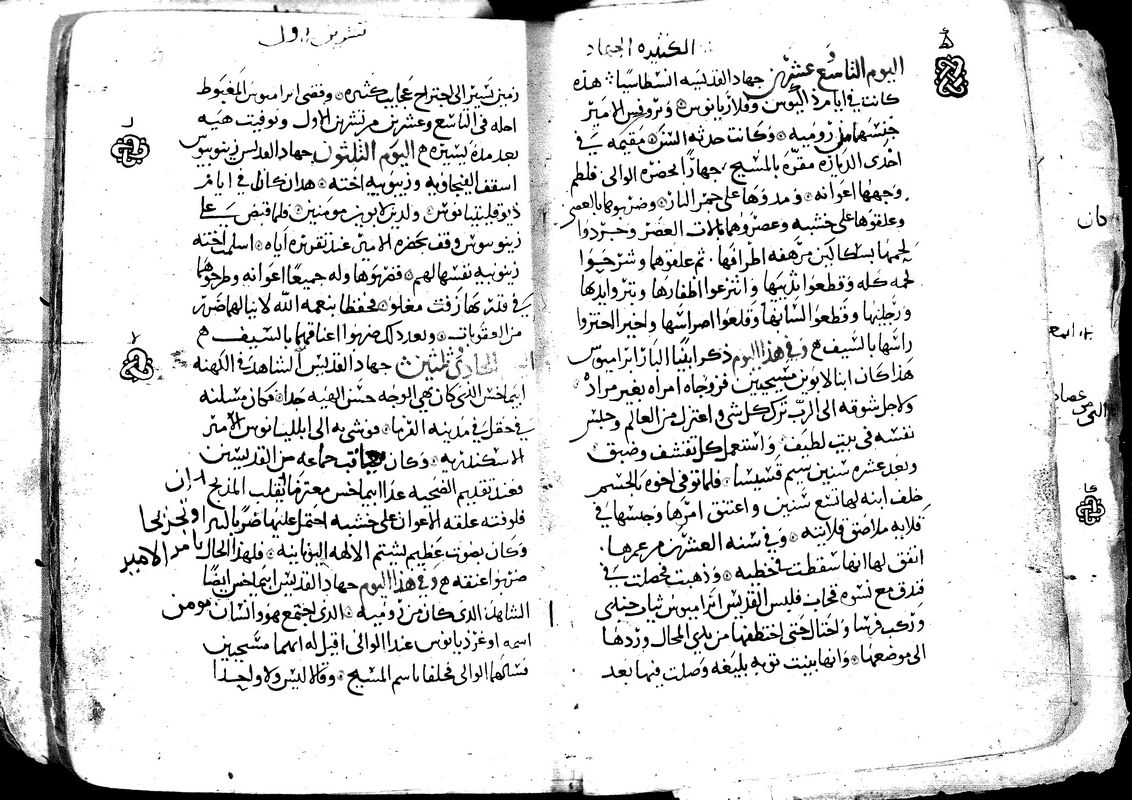 الكثيرة الجهاد
اليوم التاسع وعشرين جهاد القديسة انسطاسيا هذه
كانت في ايام ذاكيوس وفلاريانوس وبروفس الامير
جنسها من رومية وكانت حدثه السن مقيمه في
احدى الديارة مقرة بالمسيح جهارًا لحضرة الوالى فلطم
وجهها اعوانه ومدوها على جمر النار وضربوها بالعصى
وعلقوها على خشبه وعصروها بالات العصر وجردوا
لحمها بسكاكين مرهفه اطرافها ثم علقوها وشرحوا
لحمه كله وقطعوا ثدييها وانتزعوا اظفارها وبتروا يديها
ورجليها وقطعوا لسانها وقلعوا اضراسها واخيرا جتزوا
راسها بالسيف وفي هذا اليوم ذكر ابينا البار ابراميوس
هذا كان ابنا لابوين مسيحيين فزوجاه امراه بغير مراده
ولاجل شوقه الى الرب ترك كل شي واعتزل من العالم وحبس
نفسه في بيت لطيف واستعمل كل تقشف وضيق
وبعد عشرة سنين سيم قسيسا فلما توفى اخوه بالجسم
خلف ابنه لها تسع سنين واعتنق امرها وحبسها في
قلايه ملاصق قلايته وفي سنه العشرين من عمرها
اتفق لها انها سقطت في خطيه وذهبت فحصلت في
فندق مع نسوه قحاب فلبس القديس ابراميوس ثياب جندى
وركب فرسا واحتال حتى اختطفها من بلدي المحال وردها
الى موضعها وانها بينت توبه بليغه وصلت فيها بعد
تشرين اول
زمن يسير الى اجتراح عجايب كثيره وقضى ابراميوس المغبوط
اجله في التاسع وعشرين من تشرين الاول وتوفيت هيه
بعد مدة يسيره اليوم الثلثون جهاد القديس زينوبيوس
اسقف الفيجاوبه وزينوبيه اخته هذان كانا في ايام
ذيوقليتيانوس ولدين لابوين مومنين فلما قبض على
زينوبيوس وقف بحضرة الامير عند تقريره اياه اسلمت اخته
زينوبيه نفسها لهم فضربوها وله جميعًا اعوانه وطرحوهما
في قدر بها زفت مغلو فحفظا بنعمه الله لا ينالهما ضرر
من العقوبات وبعد ذلك ضربوا اعناقهما بالسيف
الحادي ثلثين جهاد القديس الشاهد في الكهنه
ابيماخس الذي كان بهي الوجه حسن الهيه جدا فكان مسكنه
في حقل في مدينه الفرما فوشى به الى ابلليانوس الامير
الاسكندريه وكان يعاقب جماعه من القديسين
فعند تقديم الضحيه غدا ابيماخس معترفا ليقلب المذبح
فلوقته علقه الاعوان على خشبه احتمل عليها ضربًا
وكان بصوت عظيم يشتم الالهه اليونانيه فلهذا الحال بامر الامير
ضربوا عنقه وفي هذا اليوم جهاد القديس ابيماخس ايضًا
الشاهد الذي كان من رومية الذي اجتمع هو وانسان مومن
اسمه اوغرذيانوس عند الوالى اقبل له انهما مسيحيين
فسالهما الوالى فحلفا باسم المسيح وقالا ليس ولا واحدا